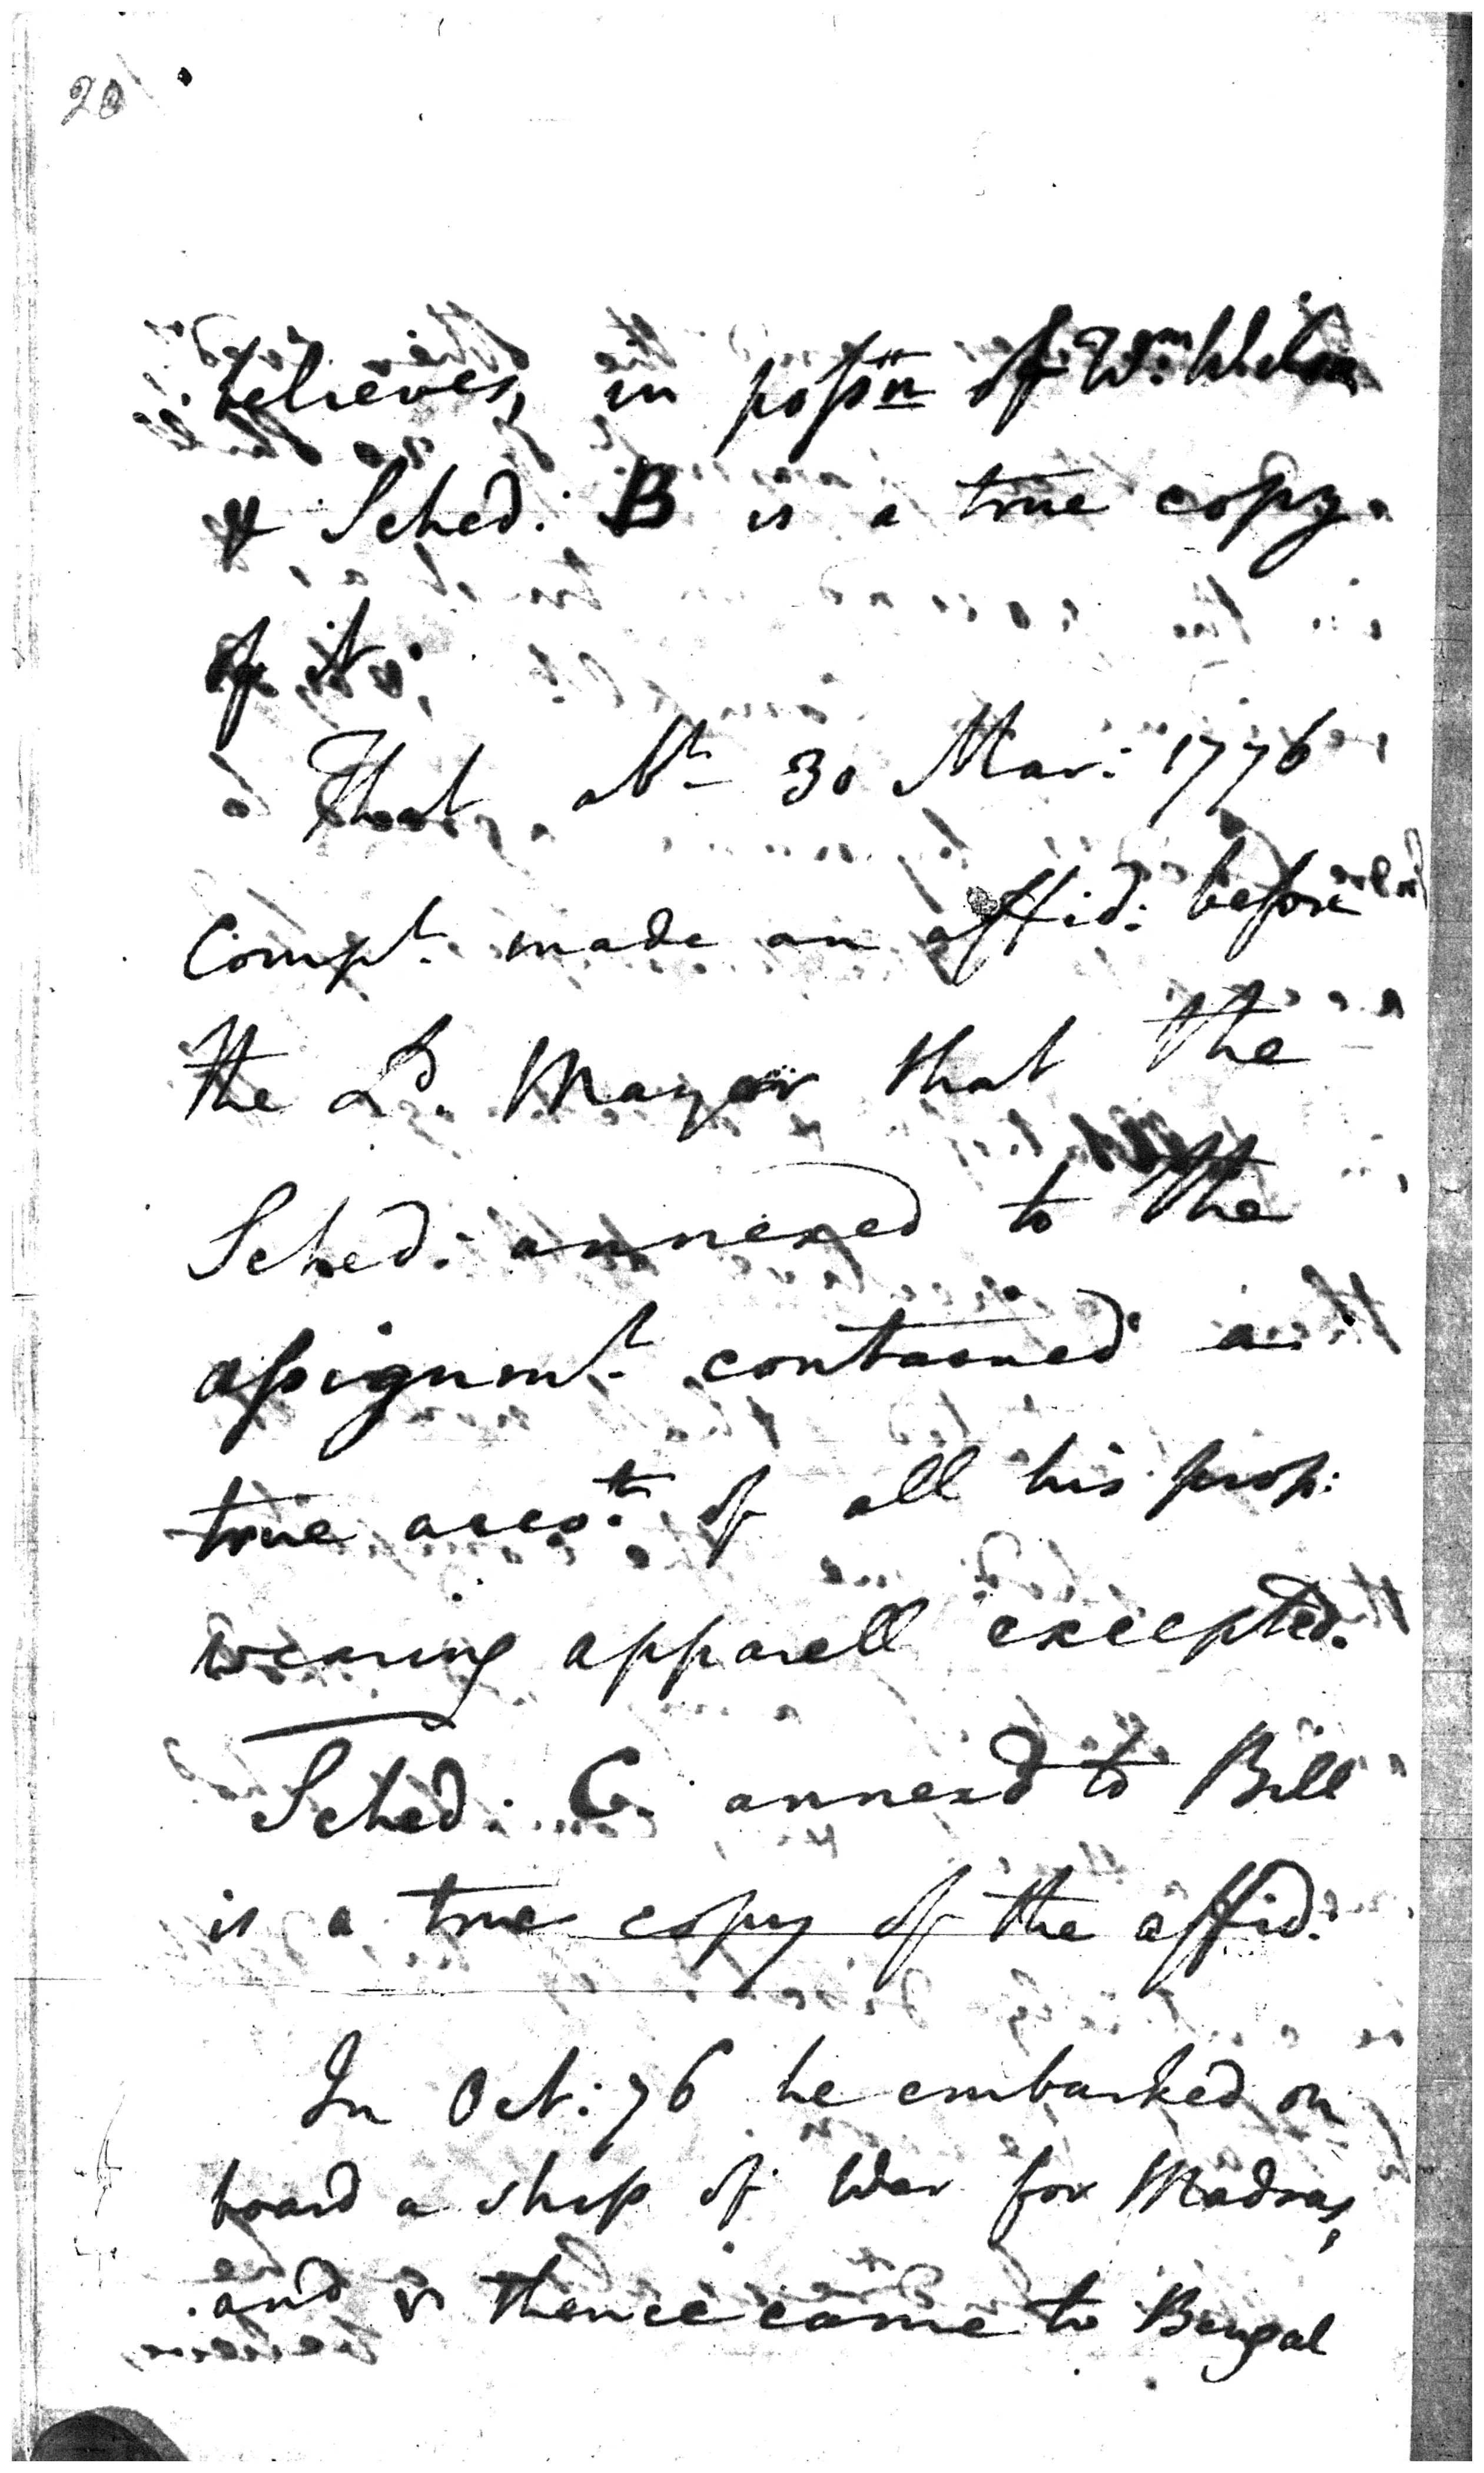 20
believes, in poss:n of Wm
& Sched: B is a true copy
of it.
That abt 30 Mar: 1776
Compt. made an affid: before
the Ld. Mayor that the
Sched: annexed to the
assignmt. contained a
true accot. of all his prop:
wearing apparell excepted.
Sched: C. annexd to Bill
is a true copy of the affid:
In Oct: 76 he embarked on
board a ship of War for Madras,
and thence came to Bengal